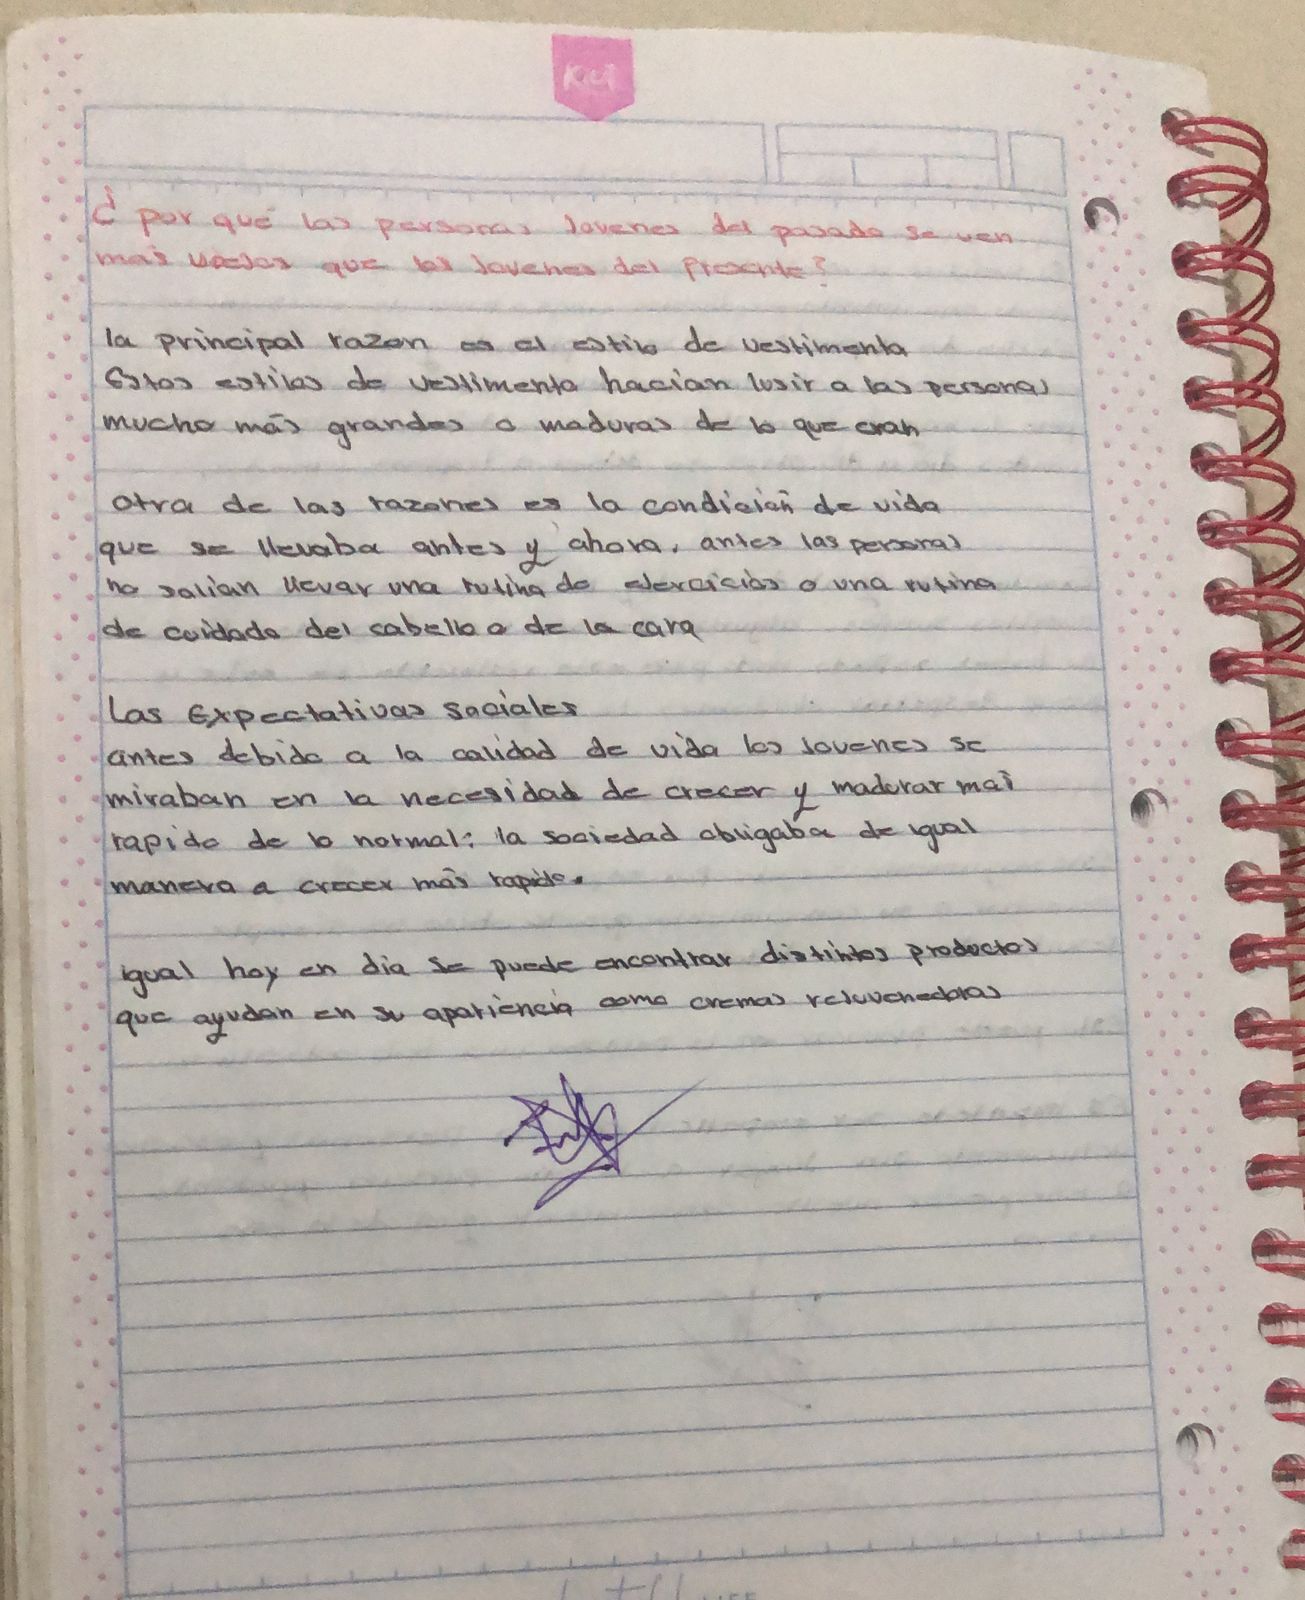 Kiut
¿ por qué las personas Jovenes del pasado se ven
más viejos que los Jovenes del Presente?
la principal razon es el estilo de vestimenta
Estos estilos de vestimenta hacían lusir a las personas
mucho más grandes o maduras de lo que eran
otra de las razones es la condición de vida
que se llevaba antes y ahora, antes las personas
no solían llevar una rutina de ejercicios o una rutina
de cuidado del cabello o de la cara
Las Expectativas sociales
antes debido a la calidad de vida los Jovenes se
miraban en la necesidad de crecer y madurar más
rapido de lo normal; la sociedad obligaba de igual
manera a crecer más rapido.
igual hoy en día se puede encontrar distintos productos
que ayudan en su apariencia como cremas rejuvenedoras